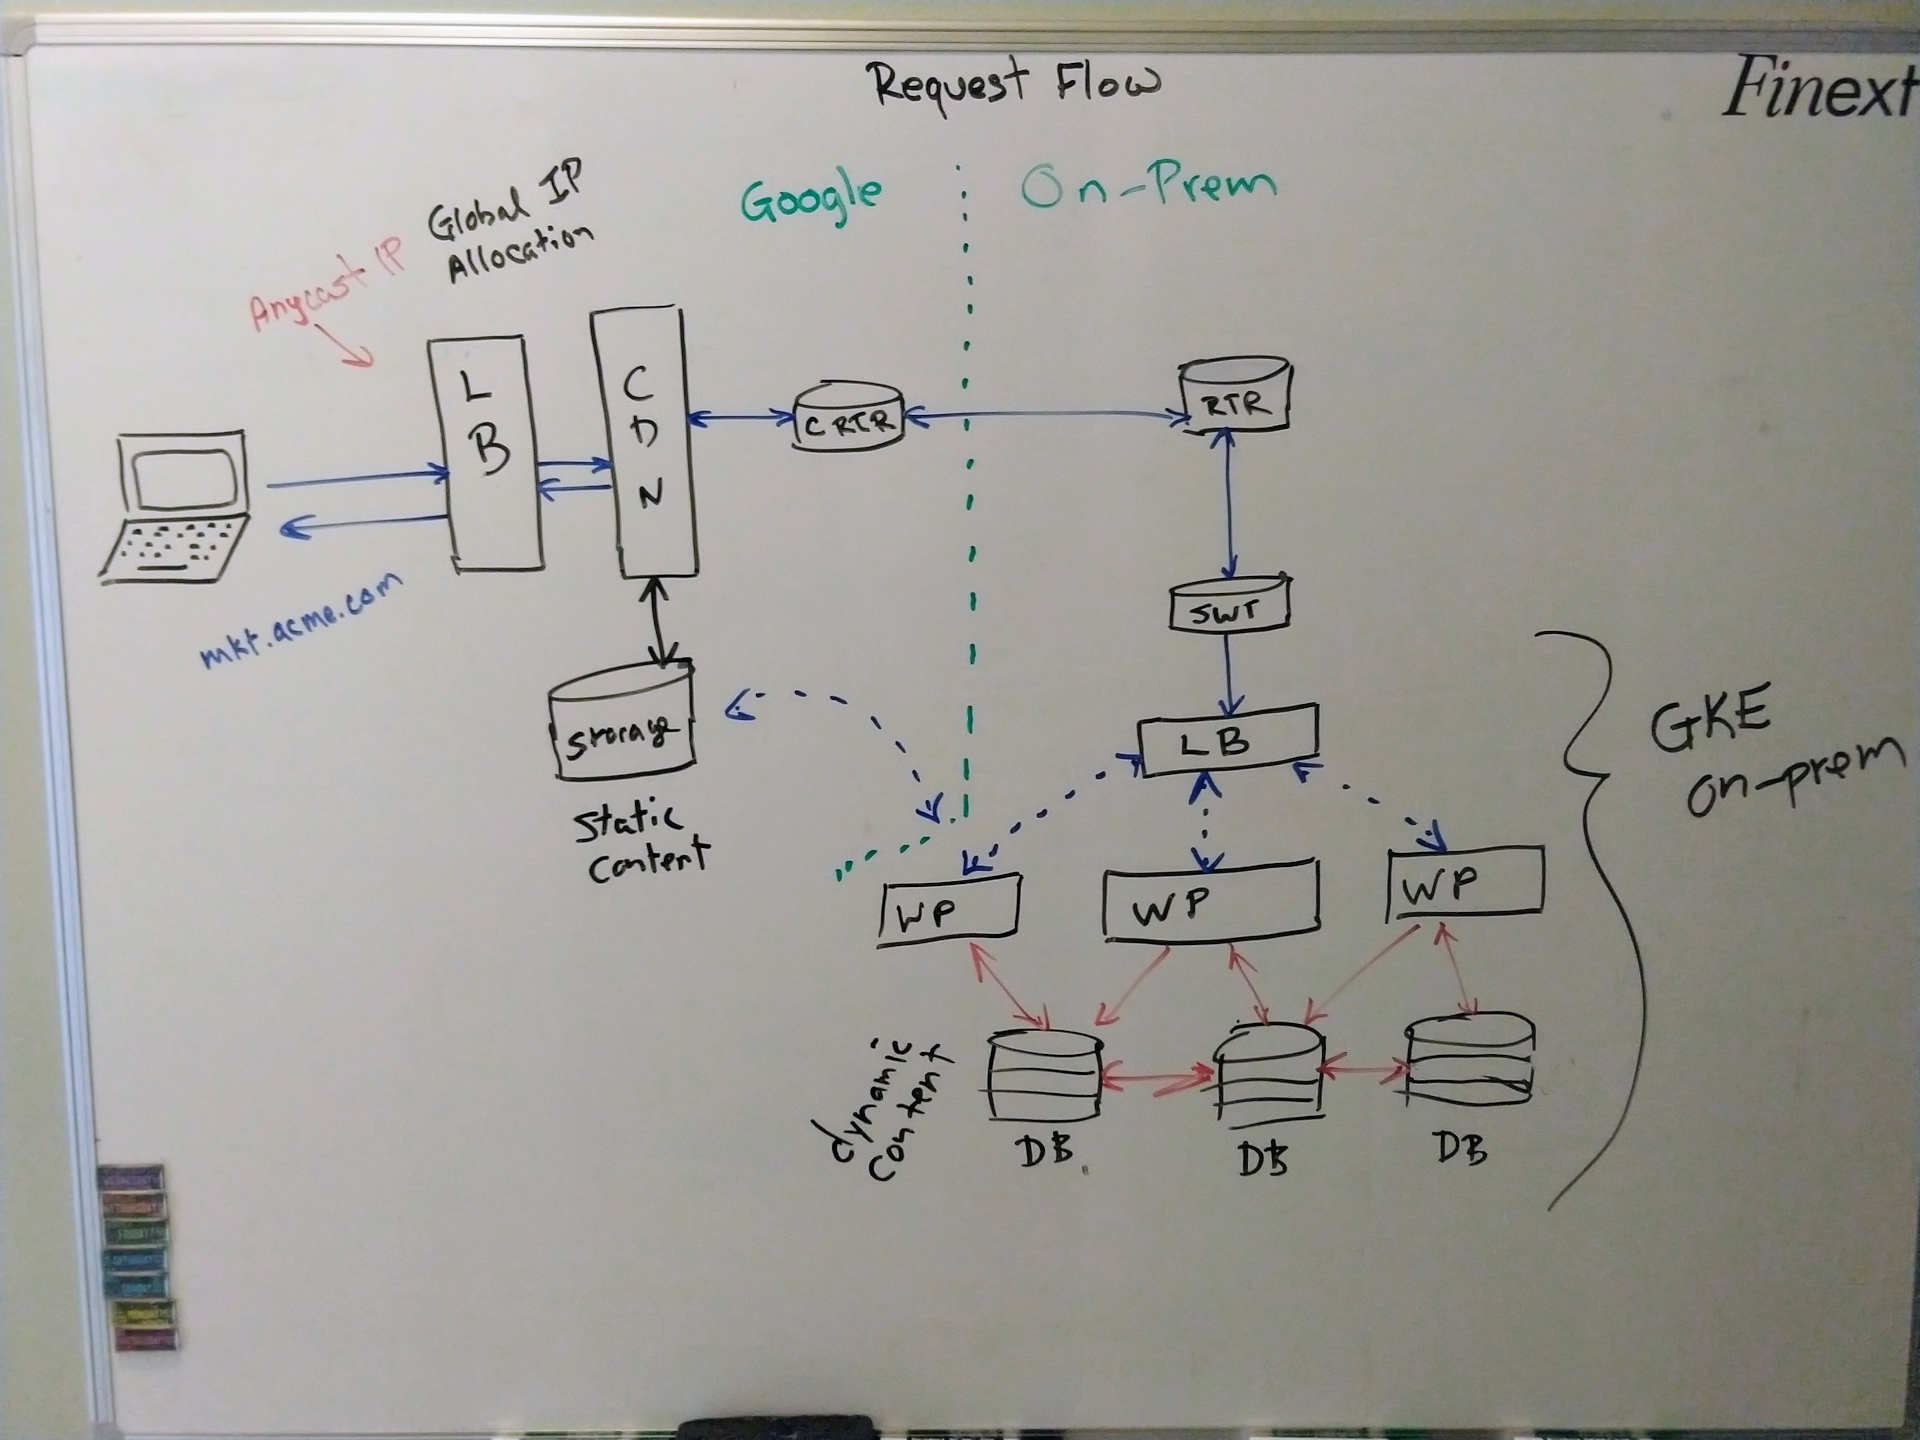 Request Flow
Finext
Google
On-Prem
Global IP
Allocation
Anycast IP
L
B
C
D
N
C RTR
RTR
mkt.acme.com
SWT
LB
Storage
Static
Content
GKE
on-prem
WP
WP
WP
dynamic
content
DB
DB
DB